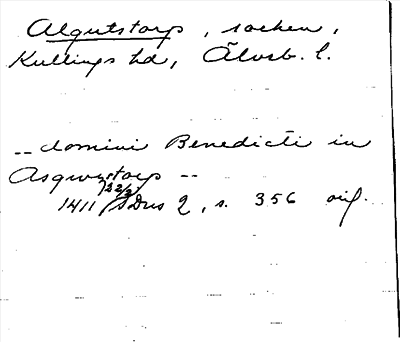 Algutstorp, socken,
Kullings hd, Älvsb. l.
-- domini Benedicti in
Asgwtstorp --
22/2
1411 SDns 2, s. 356 orig.